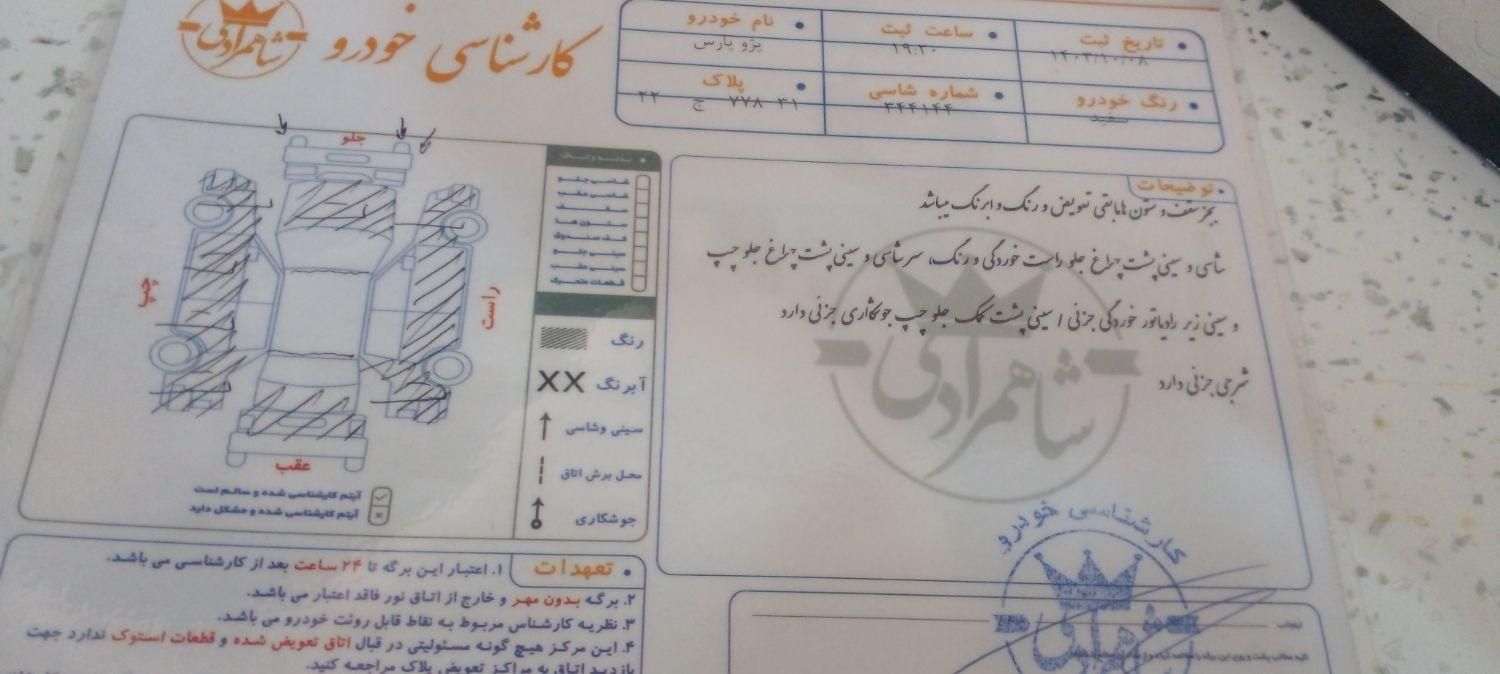 شاهمرادی
کارشناسی خودرو
تاریخ ثبت
۱۴۰۳/۱۰/۰۸
ساعت ثبت
۱۹:۲۰
نام خودرو
پژو پارس
رنگ خودرو
سفید
شماره شاسی
۳۴۴۱۴۴
پلاک
۳۱ ۷۷۸ ج ۲۲
توضیحات
بجز سقف و ستون ها مابقی تعویض و رنگ و ابرنگ میباشد
شاسی و سینی پشت چراغ جلو راست خوردگی و رنگ، سر شاسی و سینی پشت چراغ جلو چپ
و سینی زیر رادیاتور خوردگی جزئی / سینی پشت کمک جلو چپ جوشکاری جزئی دارد
شرجی جزئی دارد
شاهمرادی
جلو
چپ
راست
عقب
شاسی جلو
شاسی عقب
سقف
ستون ها
کف صندوق
سینی جلو
سینی عقب
قطعات متحرک
رنگ
XX آبرنگ
سینی وشاسی
محل برش اتاق
جوشکاری
آیتم کارشناسی شده و سالم است
آیتم کارشناسی شده و مشکل دارد
تعهدات
۱. اعتبار این برگه تا ۲۴ ساعت بعد از کارشناسی می باشد.
۲. برگه بدون مهر و خارج از اتاق نور فاقد اعتبار می باشد.
۳. نظریه کارشناس مربوط به نقاط قابل روئت خودرو می باشد.
۴. این مرکز هیچ گونه مسئولیتی در قبال اتاق تعویض شده و قطعات استوک ندارد جهت
بازدید اتاق به مراکز تعویض پلاک مراجعه کنید.
کارشناسی خودرو
اینجانب